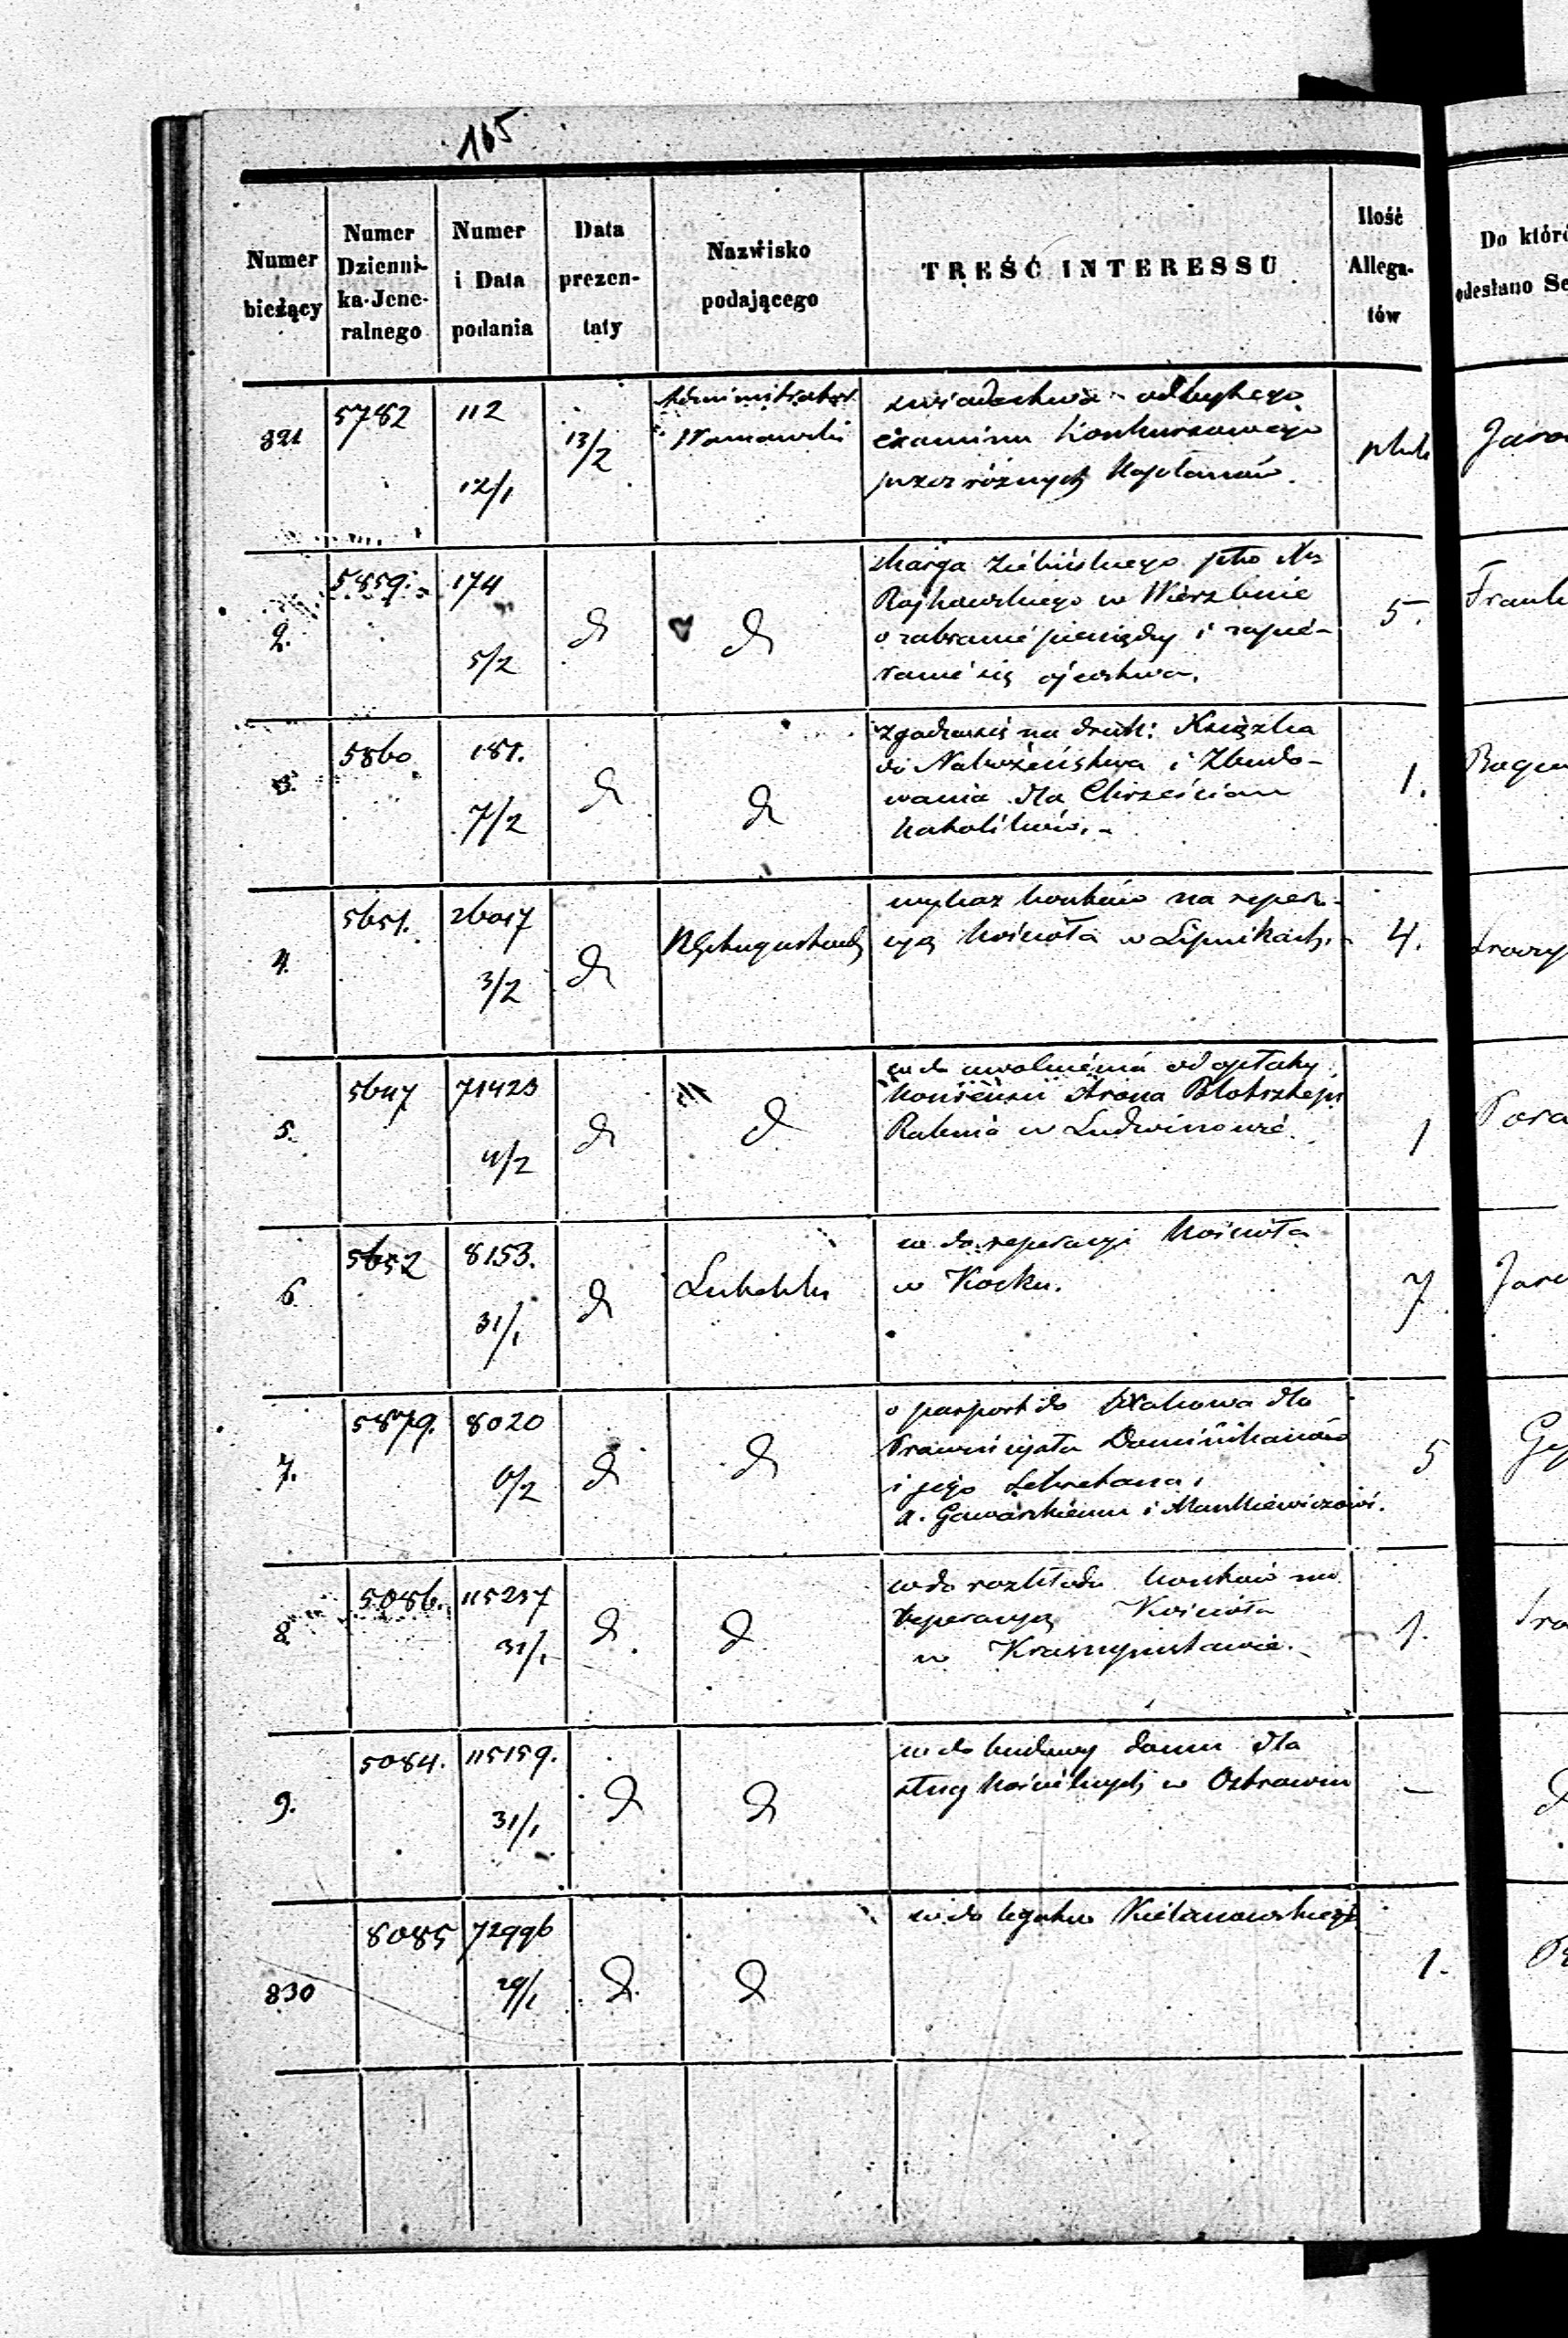 165
Numer bieżący
Numer Dziennika Jeneralnego
Numer i Data podania
Data prezentaty
Nazwisko podającego
TREŚĆ INTERESSU
Ilość Allegatów
Do któr
odesłano Se
821 5782 112 12/1 13/2 Administrator
świadectwa odbytego
examinu konkursowego
przez różnych Kapłanów.
2. 5859. 174 5/2 d d
skarga Zielińskiego pko
Rajkowskiego w Wierzbnie
o zabranie pieniędzy i zapie-
ranie się ojcostwa.
5.
3. 5860 181. 7/2 d d
zgadza się na druk: Książka
do Nabożeństwa i Zbudo-
wania dla Chrześcian
Katolików.-
1.
4. 5651. 26017 3/2 d
wykaz kosztów na repera-
cyą kościoła w Lipnikach.
4.
5. 5647 71423 4/2 d d
w do uwolnienia od opłaty
konsensu Arona
Rabina w Ludwinowie.
1
6. 5652 8153. 31/1 d Lubelski
w do reperacyi kościoła
w Kocku.
7
7. 5879. 8020 6/2 d d
o pasport do Krakowa dla
Prowincyała Dominikanów
i jego Sekretarza,
i Mankiewiczowi.
5
8. 5086. 115237 31/1 d d
w do rozkładu kosztów na
reperacyą Kościoła
w Krasnymstawie.
1.
9. 5084. 115159. 31/1 d d
w do budowy domu dla
sług kościelnych w Ostrowiu
—
830 8085 72996 29/1 d d
w do legatu Kielanowskiego
1.